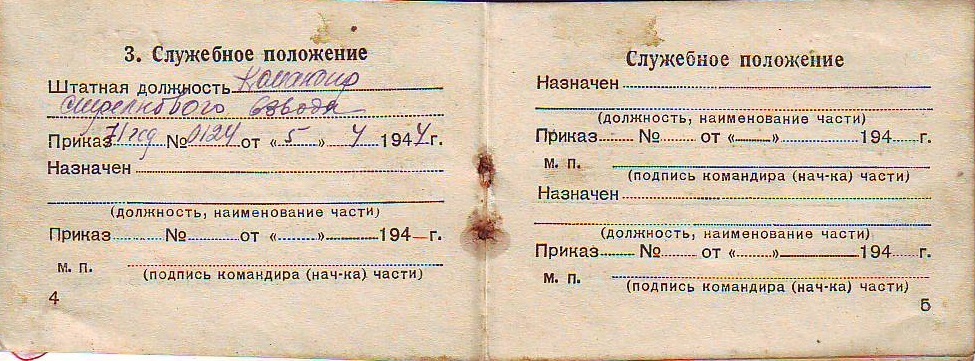 3. Служебное положение
Штатная должность Командир
стрелкового взвода
Приказ 71 гсд № 0124 от «5» 4 1944 г.
Назначен
(должность, наименование части)
Приказ № от « » 194 г.
м. п. (подпись командира (нач-ка) части)
4
Служебное положение
Назначен
(должность, наименование части)
Приказ № от « » 194 г.
м. п. (подпись командира (нач-ка) части)
Назначен
(должность, наименование части)
Приказ № от « » 194 г.
м. п. (подпись командира (нач-ка) части)
5